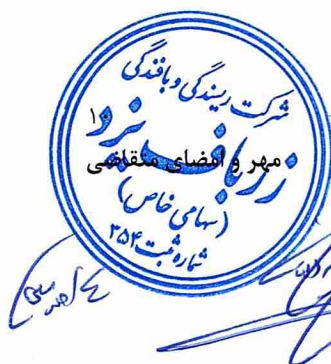 شرکت ریسندگی و بافندگی
۱۰
زرباف یزد
مهر و امضای متقاضی
(سهامی خاص)
شماره ثبت ۲۵۴